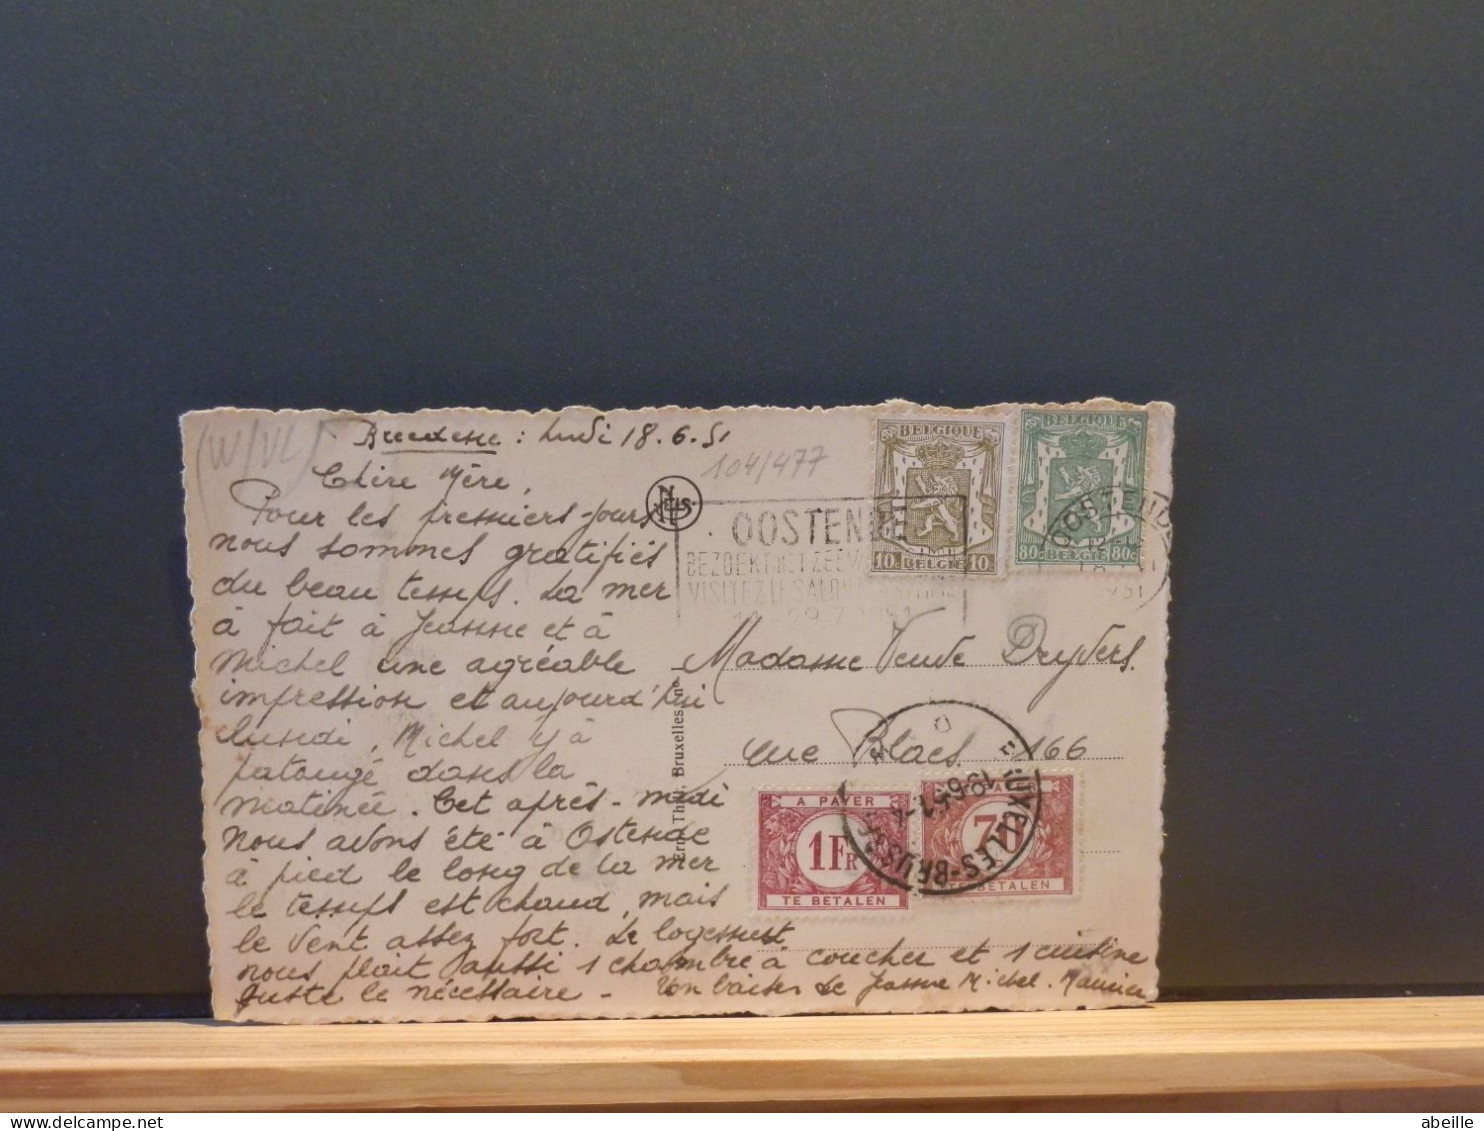 (W/VL)
Breedene : Lundi 18.6.51
104/477
Chère Mère,
Pour les premiers jours
nous sommes gratifiés
du beau temps. La mer
à fait à Jeanne et à
Michel une agréable
impression et aujourd'hui
lundi, Michel y à
patougé dans la
matinée. Cet après-midi
nous avons été à Ostende
à pied le long de la mer
le temps est chaud, mais
le vent assez fort. Le logement
nous plait aussi 1 chambre à coucher et 1 cuisine
juste le nécessaire - Bon baiser de Jeanne Michel. Maurice
NELS
Ern. Thill, Bruxelles, no
OOSTENDE
BEZOEKT HET ZEE
VISITEZ LE SALON
7 1951
BELGIQUE
10c 10c
BELGIE
BELGIQUE
80c BELGIE 80c
OOSTENDE
1951
Madame Veuve Dryvers.
rue Blaes 166
A PAYER
1 FR
TE BETALEN
A
70
TE BETALEN
BRUXELLES-BRUSSEL
19-6-51
D
delcampe.net
abeille